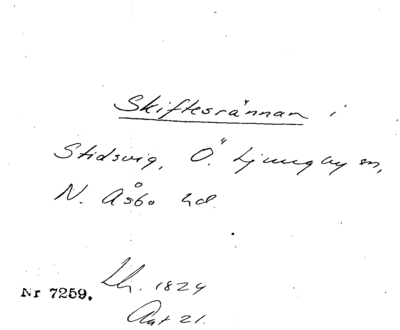 Skiftesrännan i
Stidsvig, Ö. Ljungby sn,
N. Åsbo hd.
Lh. 1824
Nr 7259.
Akt 21.